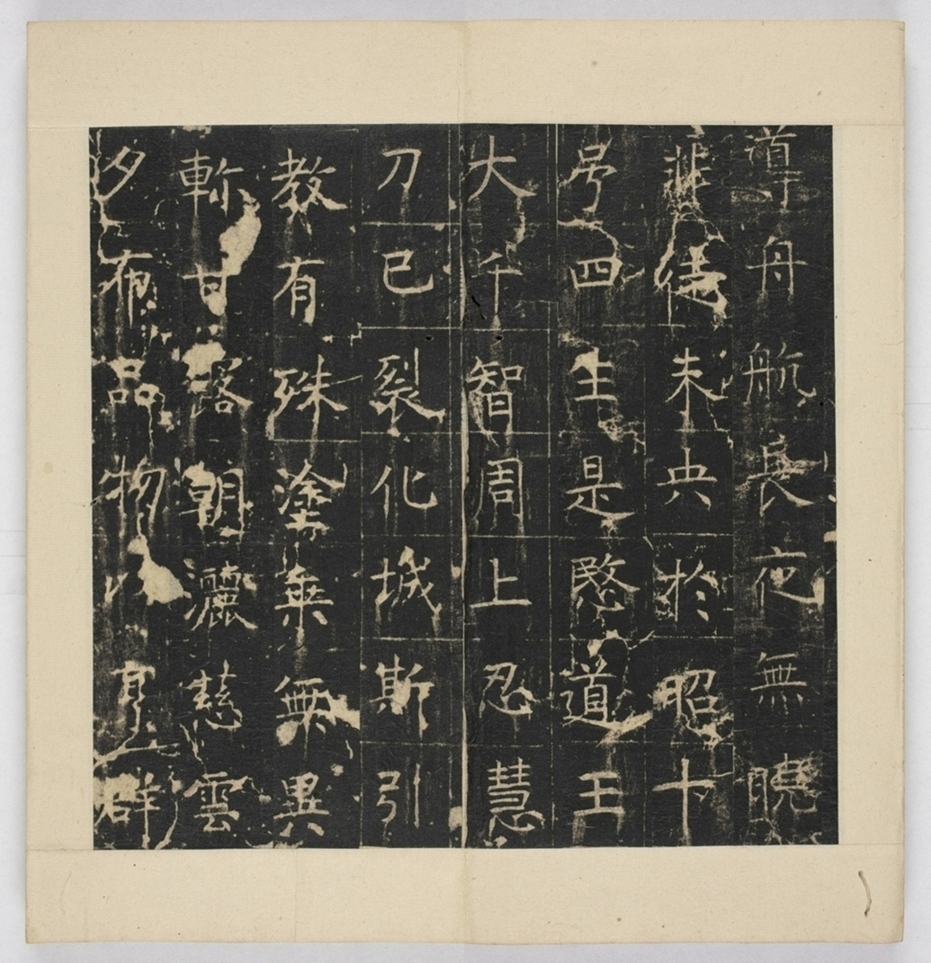 導舟航長夜無曉
悲未央於昭十
号四生是愍道王
大千智周上忍慧
刀已裂化城斯引
教有殊塗乗無異
軫甘露朝灑慈雲
夕布品物以亨群